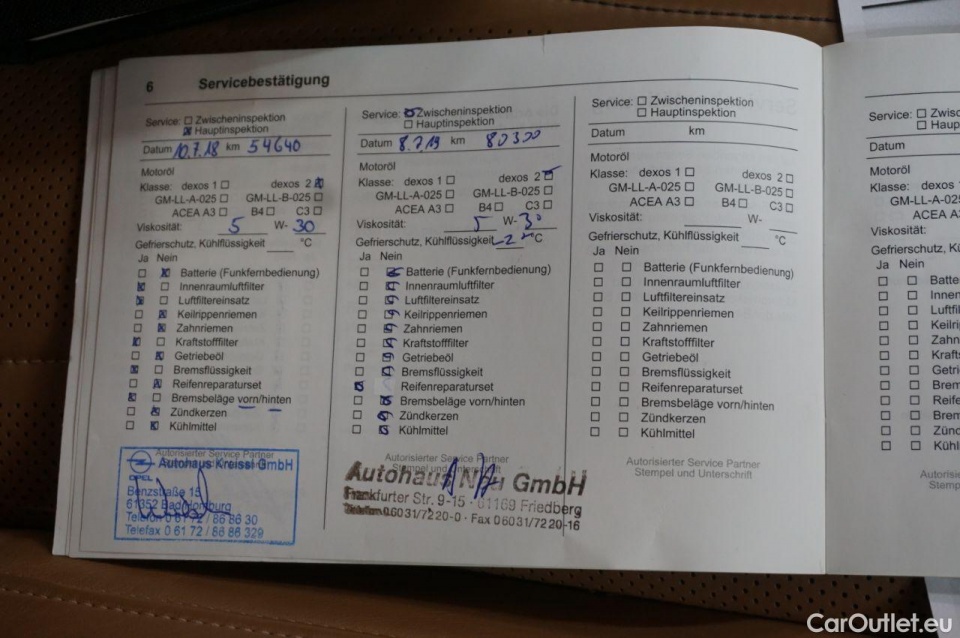 6 Servicebestätigung
Service: ☐ Zwischeninspektion
☒ Hauptinspektion
Datum 10.7.18 km 54640
Motoröl
Klasse: dexos 1 ☐ dexos 2 ☒
GM-LL-A-025 ☐ GM-LL-B-025 ☐
ACEA A3 ☐ B4 ☐ C3 ☐
Viskosität: 5 W- 30
Gefrierschutz, Kühlflüssigkeit °C
Ja Nein
☐ ☒ Batterie (Funkfernbedienung)
☒ ☐ Innenraumluftfilter
☒ ☐ Luftfiltereinsatz
☐ ☒ Keilrippenriemen
☐ ☒ Zahnriemen
☒ ☐ Kraftstofffilter
☐ ☒ Getriebeöl
☒ ☐ Bremsflüssigkeit
☐ ☒ Reifenreparaturset
☒ ☐ Bremsbeläge vorn/hinten
☐ ☒ Zündkerzen
☐ ☒ Kühlmittel
Autorisierter Service Partner
OPEL
Autohaus Kreissl GmbH
Benzstraße 15
61352 Bad Homburg
Telefon 0 61 72 / 86 86 30
Telefax 0 61 72 / 86 86 329
Service: ☒ Zwischeninspektion
☐ Hauptinspektion
Datum 8.7.19 km 80300
Motoröl
Klasse: dexos 1 ☐ dexos 2 ☒
GM-LL-A-025 ☐ GM-LL-B-025 ☐
ACEA A3 ☐ B4 ☐ C3 ☐
Viskosität: 5 W- 30
Gefrierschutz, Kühlflüssigkeit °C
Ja Nein
☐ ☒ Batterie (Funkfernbedienung)
☐ ☒ Innenraumluftfilter
☐ ☒ Luftfiltereinsatz
☐ ☒ Keilrippenriemen
☐ ☒ Zahnriemen
☐ ☒ Kraftstofffilter
☐ ☒ Getriebeöl
☐ ☒ Bremsflüssigkeit
☒ ☐ Reifenreparaturset
☐ ☒ Bremsbeläge vorn/hinten
☐ ☒ Zündkerzen
☐ ☒ Kühlmittel
Autorisierter Service Partner
Stempel und Unterschrift
Autohaus GmbH
Frankfurter Str. 9-15 · 61169 Friedberg
Telefon 06031/7220-0 · Fax 06031/7220-16
Service: ☐ Zwischeninspektion
☐ Hauptinspektion
Datum km
Motoröl
Klasse: dexos 1 ☐ dexos 2 ☐
GM-LL-A-025 ☐ GM-LL-B-025 ☐
ACEA A3 ☐ B4 ☐ C3 ☐
Viskosität: W-
Gefrierschutz, Kühlflüssigkeit °C
Ja Nein
☐ ☐ Batterie (Funkfernbedienung)
☐ ☐ Innenraumluftfilter
☐ ☐ Luftfiltereinsatz
☐ ☐ Keilrippenriemen
☐ ☐ Zahnriemen
☐ ☐ Kraftstofffilter
☐ ☐ Getriebeöl
☐ ☐ Bremsflüssigkeit
☐ ☐ Reifenreparaturset
☐ ☐ Bremsbeläge vorn/hinten
☐ ☐ Zündkerzen
☐ ☐ Kühlmittel
Autorisierter Service Partner
Stempel und Unterschrift
Service: ☐ Zwisc
☐ Haup
Datum
Motoröl
Klasse: dexos
GM-LL-A-02
ACEA A
Viskosität:
Gefrierschutz, K
Ja Nein
☐ ☐ Batte
☐ ☐ Innen
☐ ☐ Luftfi
☐ ☐ Keilri
☐ ☐ Zahn
☐ ☐ Kraft
☐ ☐ Getri
☐ ☐ Brem
☐ ☐ Reife
☐ ☐ Brem
☐ ☐ Zünd
☐ ☐ Kühl
Autoris
Stem
CarOutlet.eu